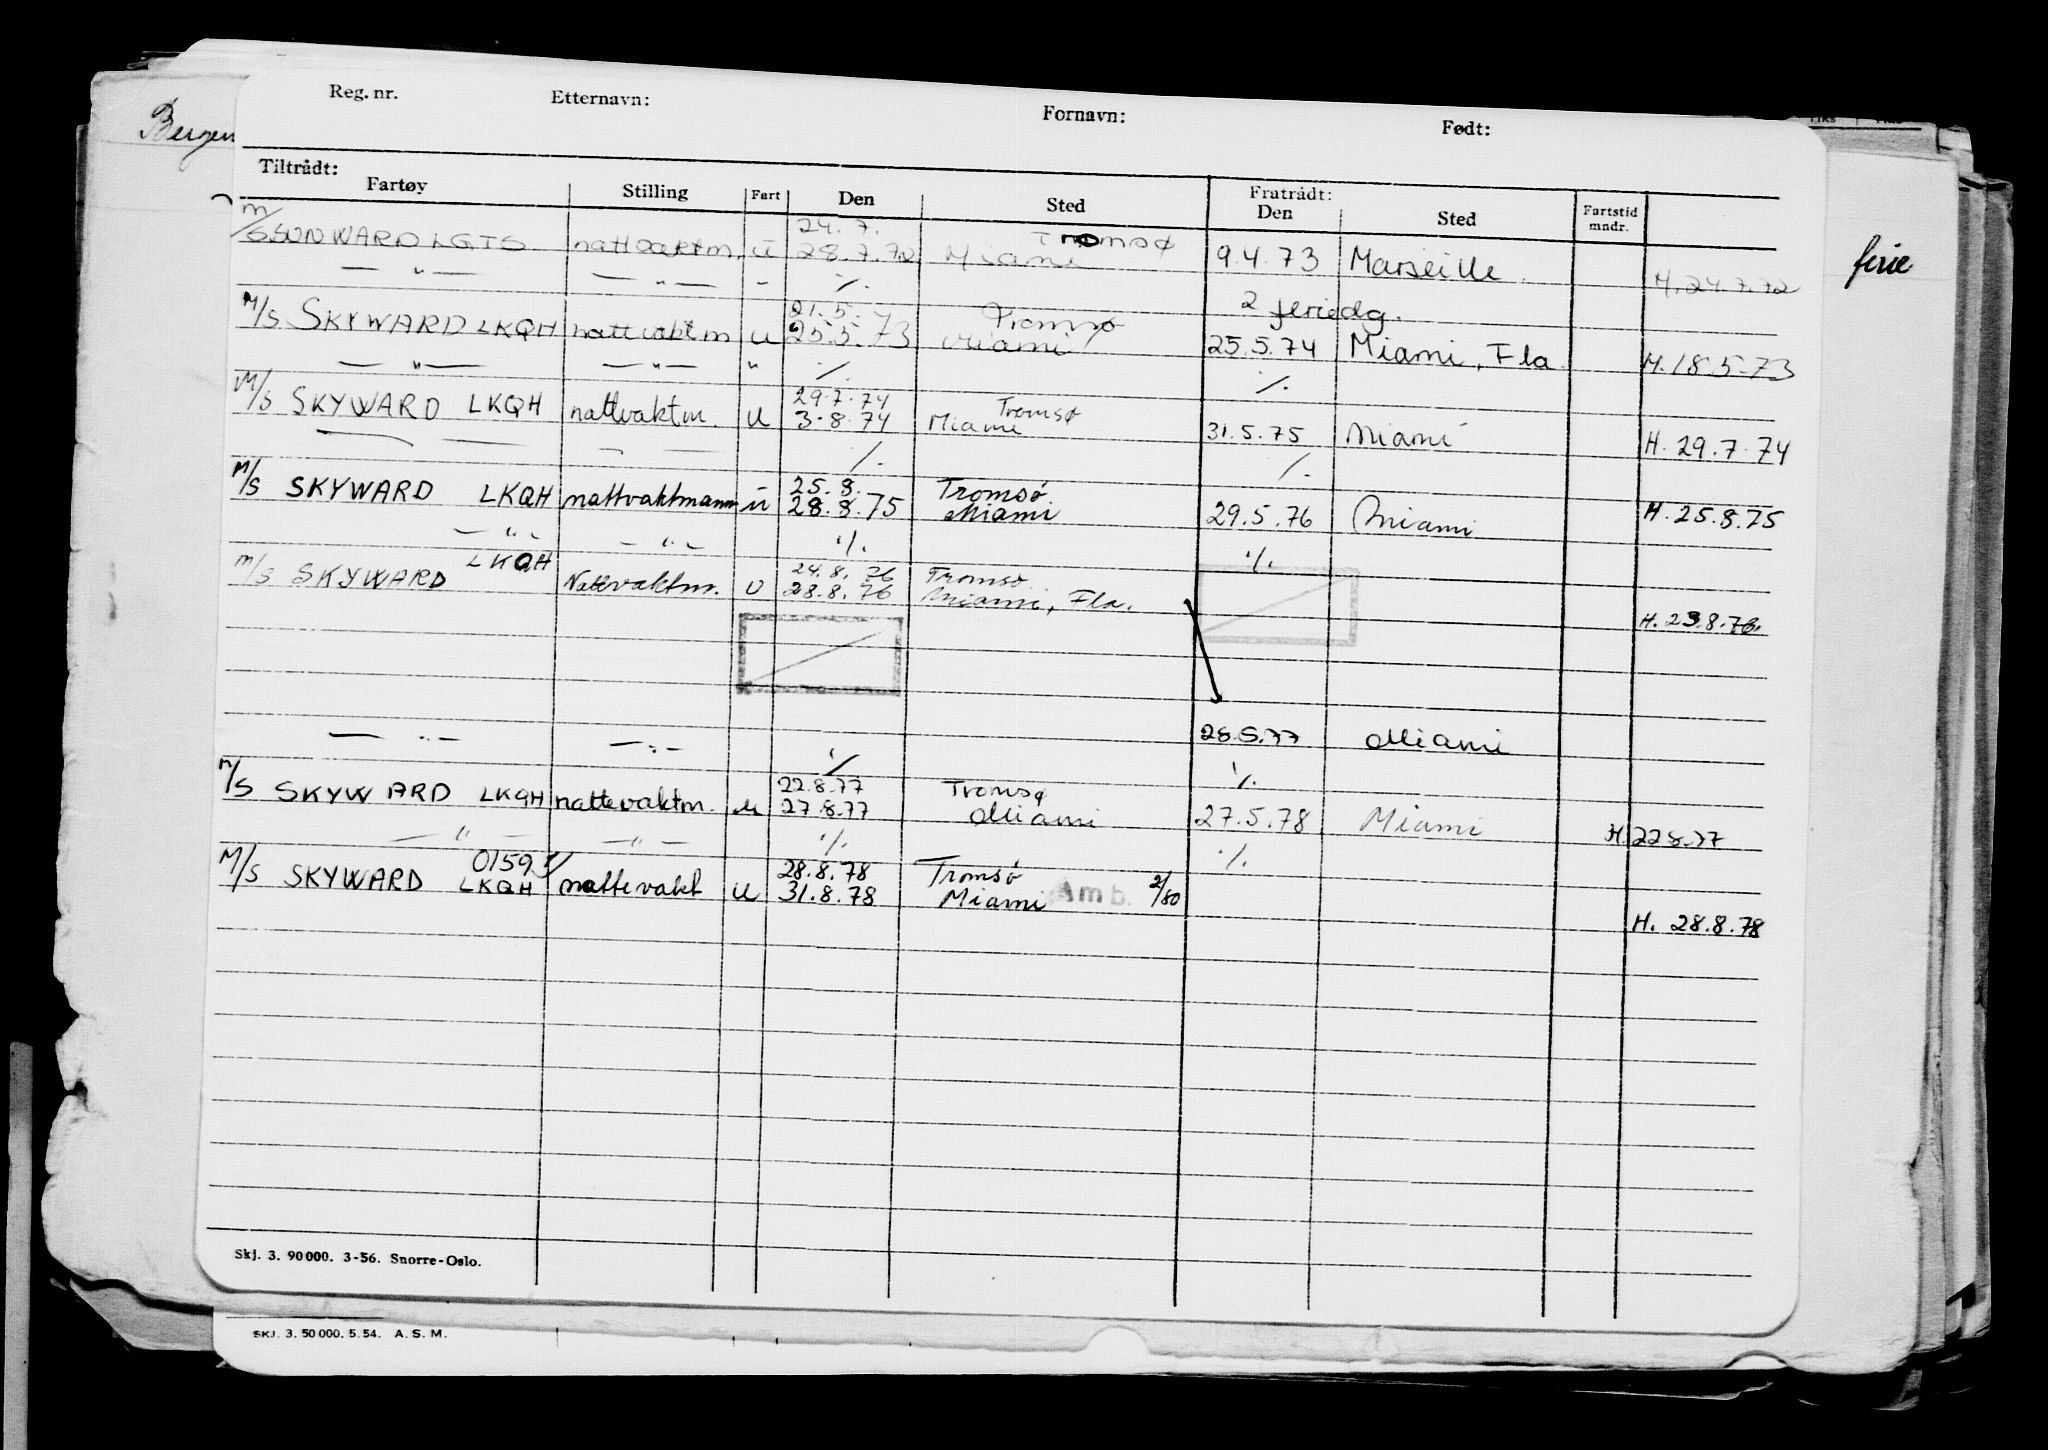 Bergen
Reg. nr. Etternavn: Fornavn: Født:
Tiltrådt: Fratrådt:
Fartøy Stilling Fart Den Sted Den Sted Fartstid mndr.
24.7. Tromsø
M/S SUNWARD LGTS nattvaktm. u 28.7.72 Miami 9.4.73 Marseille.
— " — — " — " ./. H. 24.7.72
ferie
21.5. Tromsø 2 feriedg.
M/S SKYWARD LKQH nattvaktm u 25.5.73 Miami 25.5.74 Miami, Fla
— " — — " — " ./. ./. H. 18.5.73
29.7.74 Tromsø
M/S SKYWARD LKQH nattvaktm. u 3.8.74 Miami 31.5.75 Miami
./. ./. H. 29.7.74
25.8. Tromsø
M/S SKYWARD LKQH nattvaktmann u 28.8.75 Miami 29.5.76 Miami H. 25.8.75
— " — — " — ./. ./.
LKQH 24.8.76 Tromsø
M/S SKYWARD Nattvaktm. u 28.8.76 Miami, Fla.
H. 23.8.76.
28.5.77 Miami
— " — — " — ./. ./.
22.8.77 Tromsø
M/S SKYWARD LKQH nattevaktm. u 27.8.77 Miami 27.5.78 Miami
— " — — " — ./. ./. H. 22.8.77
0159 28.8.78 Tromsø
M/S SKYWARD LKQH nattevakt u 31.8.78 Miami Amb. 2/80
H. 28.8.78
Skj. 3. 90000. 3-56. Snorre-Oslo.
SKJ. 3. 50000. 5.54. A. S. M.